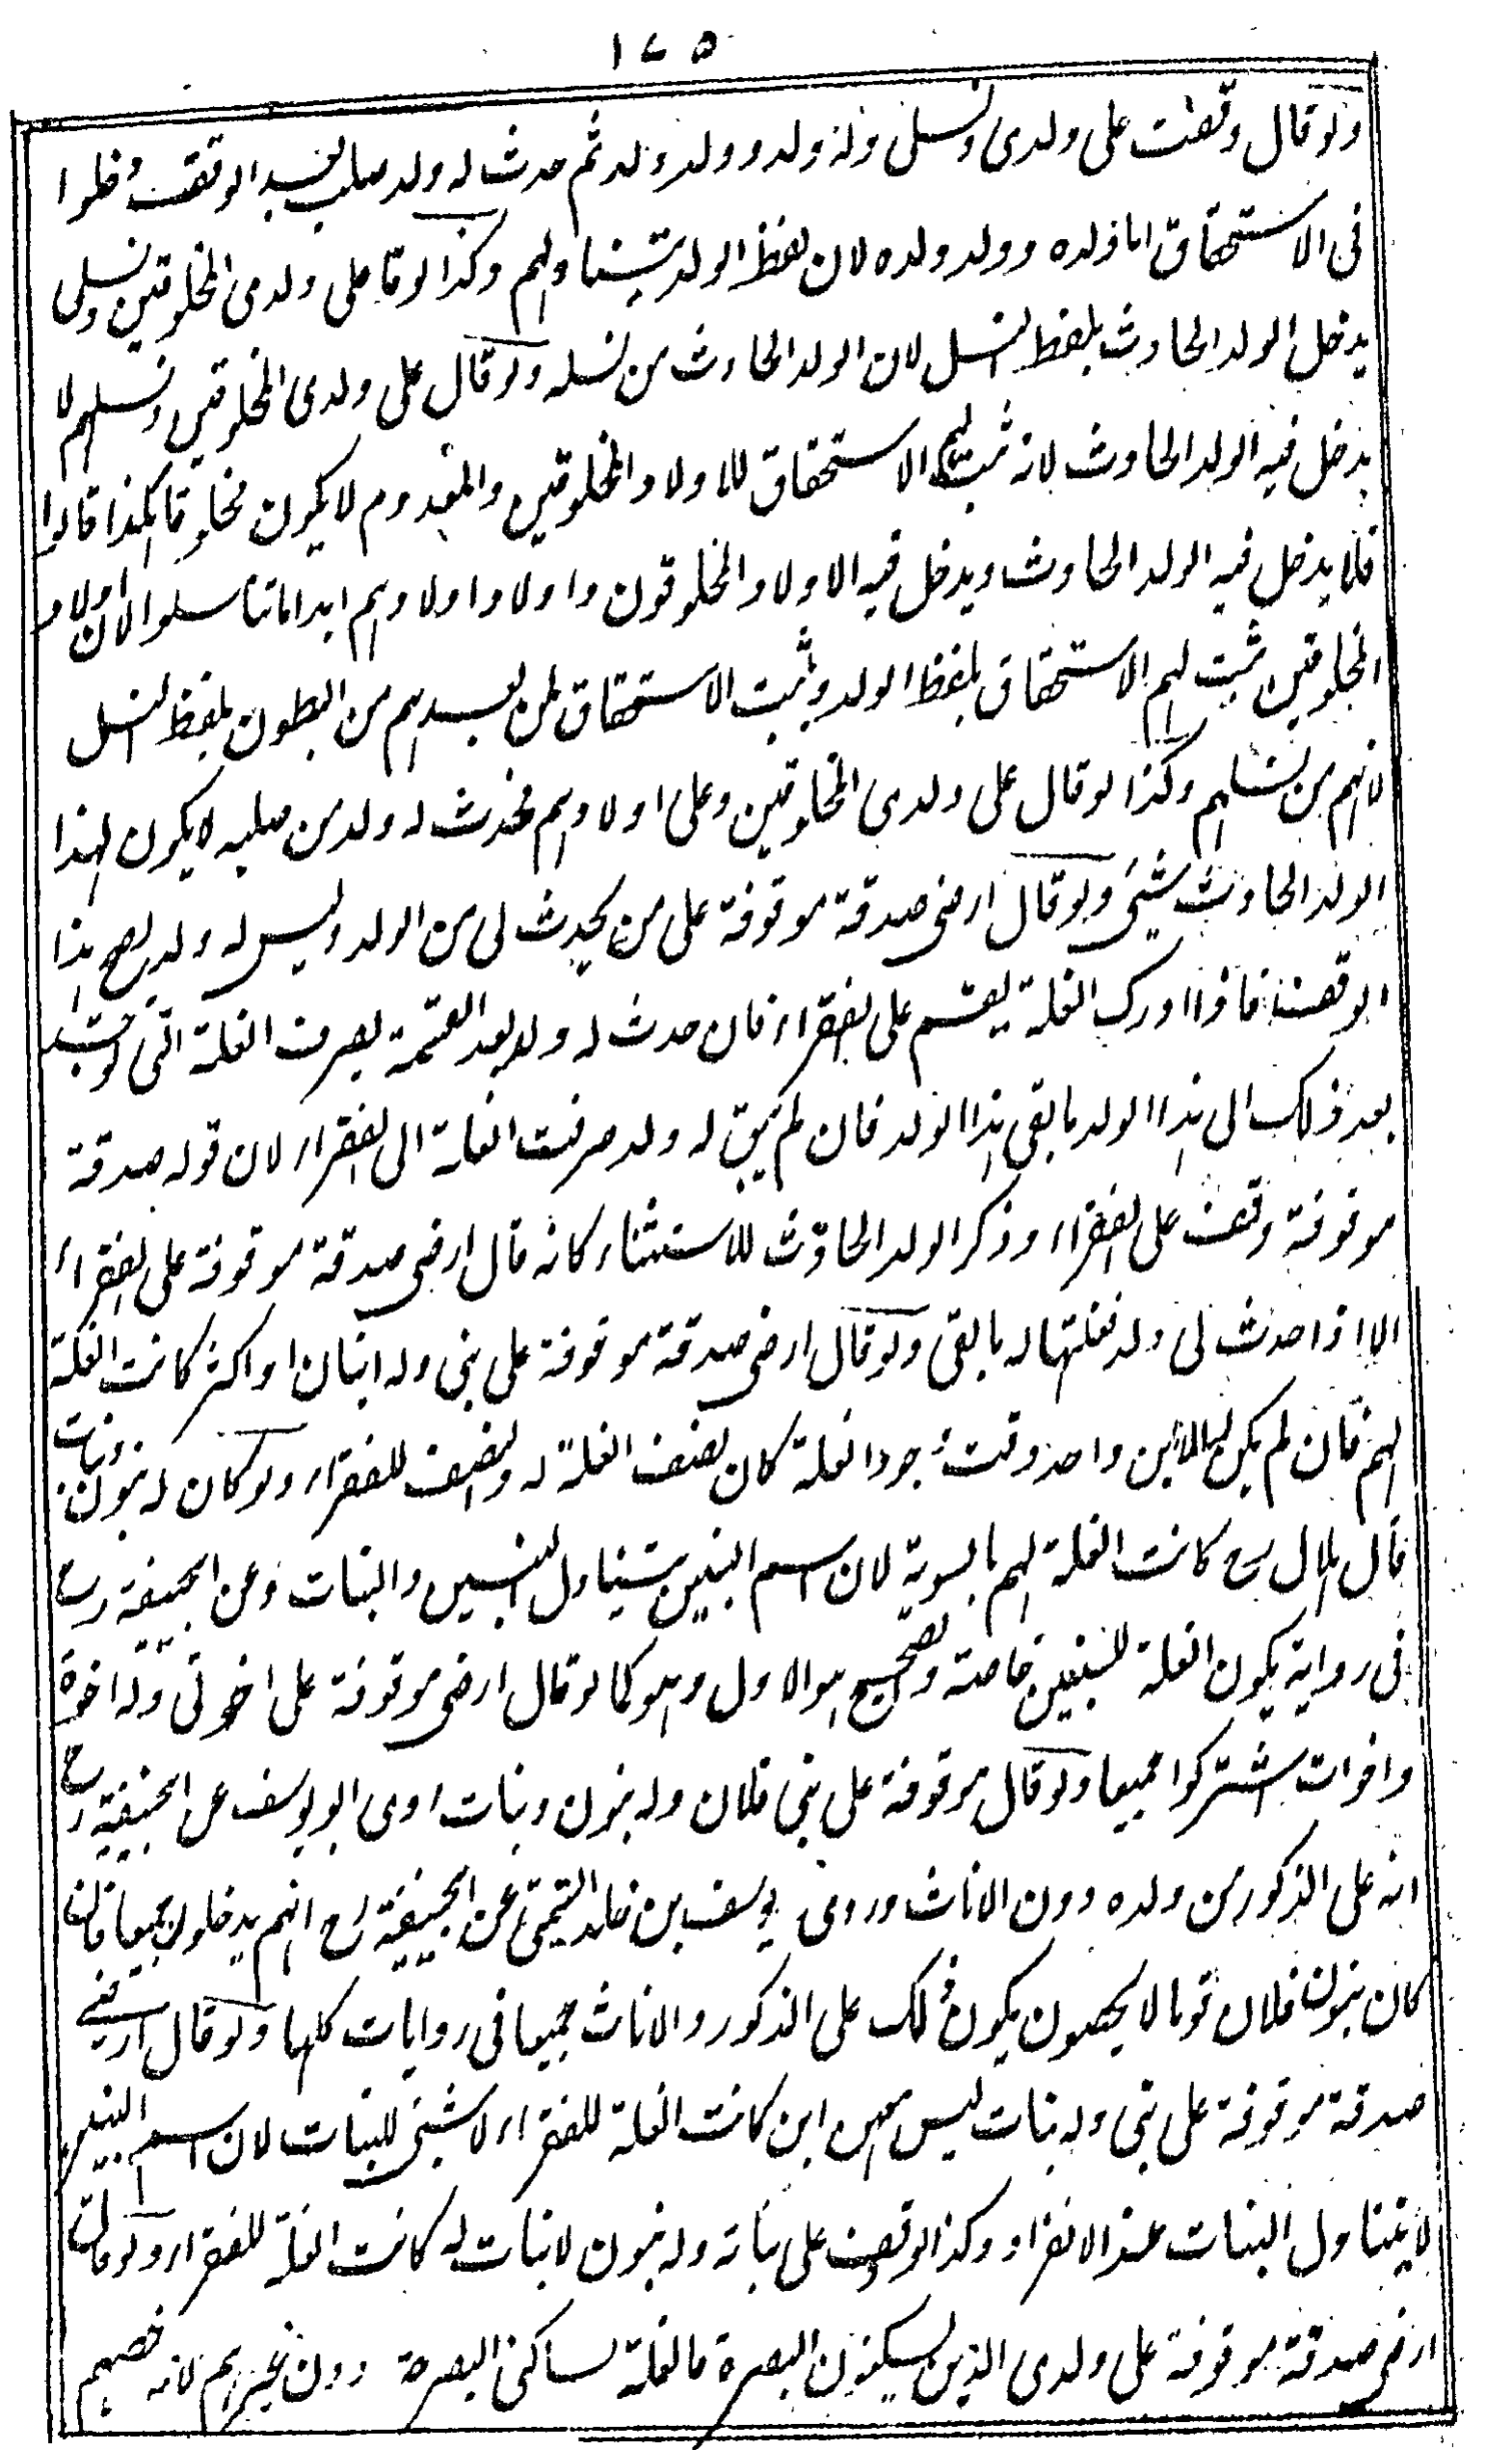 ١٧٥
ولو قال وقفت على ولدى ونسلى وله ولد وولد ولد ثم حدث له ولد صلب بعد الوقف دخلوا
فى الاستحقاق اما ولده وولد ولده لان لفظ الولد يتناولهم وكذا لو قا على ولدى المخلوقين ونسلى
يدخل الولد الحادث بلفظ النسل لان الولد الحادث من نسله ولو قال على ولدى المخلوقين ونسلهم لا
يدخل فيه الولد الحادث لانه ثبت لهم الاستحقاق للاولاد المخلوقين والمعدوم لا يكون مخلوقا هكذا قالوا
فلا يدخل فيه الولد الحادث ويدخل فيه الاولاد المخلوقون واولاد اولادهم ابدا ما تناسلوا لان اولاد
المخلوقين ثبت لهم الاستحقاق بلفظ الولد ويثبت الاستحقاق لمن بعدهم من البطون بلفظ النسل
لانهم من نسلهم وكذا لو قال على ولدى المخلوقين وعلى اولادهم فحدث له ولد من صلبه لا يكون لهذا
الولد الحادث شىء ولو قال ارضى صدقة موقوفة على من يحدث لى من الولد وليس له ولد يصح هذا
الوقف فاذا ادرك الغلة يقسم على الفقراء فان حدث له ولد بعد القسمة يصرف الغلة التى توجد
بعد ذلك الى هذا الولد ما بقى هذا الولد فان لم يبق له ولد صرفت الغلة الى الفقراء لان قوله صدقة
موقوفة وقف على الفقراء وذكر الولد الحادث للاستثناء كانه قال ارضى صدقة موقوفة على الفقراء
الا اذا حدث لى ولد فغلتها له ما بقى ولو قال ارضى صدقة موقوفة على بنى وله ابنان او اكثر كانت الغلة
لهم فان لم يكن له الا ابن واحد وقت وجود الغلة كان نصف الغلة له والنصف للفقراء ولو كان له بنون وبنات
قال هلال رح كانت الغلة لهم بالسوية لان اسم البنين يتناول البنين والبنات وعن ابيحنيفة رح
فى رواية يكون الغلة للبنين خاصة والصحيح هو الاول وهو كما لو قال ارضى موقوفة على اخوتى وله اخوة
واخوات اشتركوا جميعا ولو قال موقوفة على بنى فلان وله بنون وبنات روى ابو يوسف عن ابيحنيفة رح
انه على الذكور من ولده دون الاناث وروى يوسف بن خالد السمتى عن ابيحنيفة رح انهم يدخلون جميعا فان
كان بنون فلان قوما لا يحصون يكون ذلك على الذكور والاناث جميعا فى روايات كلها ولو قال ارضى
صدقة موقوفة على بنى وله بنات ليس معهن ابن كانت الغلة للفقراء لا شىء للبنات لان اسم البنين
لا يتناول البنات عند الانفراد وكذا لو وقف على بناته وله بنون لا بنات له كانت الغلة للفقراء ولو قال
ارضى صدقة موقوفة على ولدى الذين يسكنون البصرة فالغلة لساكنى البصرة دون غيرهم لانه خصهم